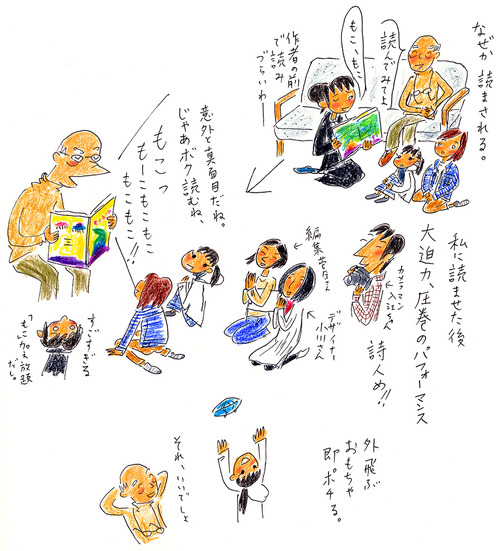 なぜか読まされる。
読んでみてよ
もこ、もこ
作者の前
で読み
づらいわー
意外と真面目だね。
じゃあボク読むね、
もこっ
もーこもこもこ
もこもこ!!
私に読ませた後
大迫力、圧巻のパフォーマンス
詩人め!!
カメラマン
編集
デザイナー
小川さん
すごすぎる
「もこ
放題
だし。
外飛ぶ
おもちゃ
即ポチる。
それ、いいでしょ